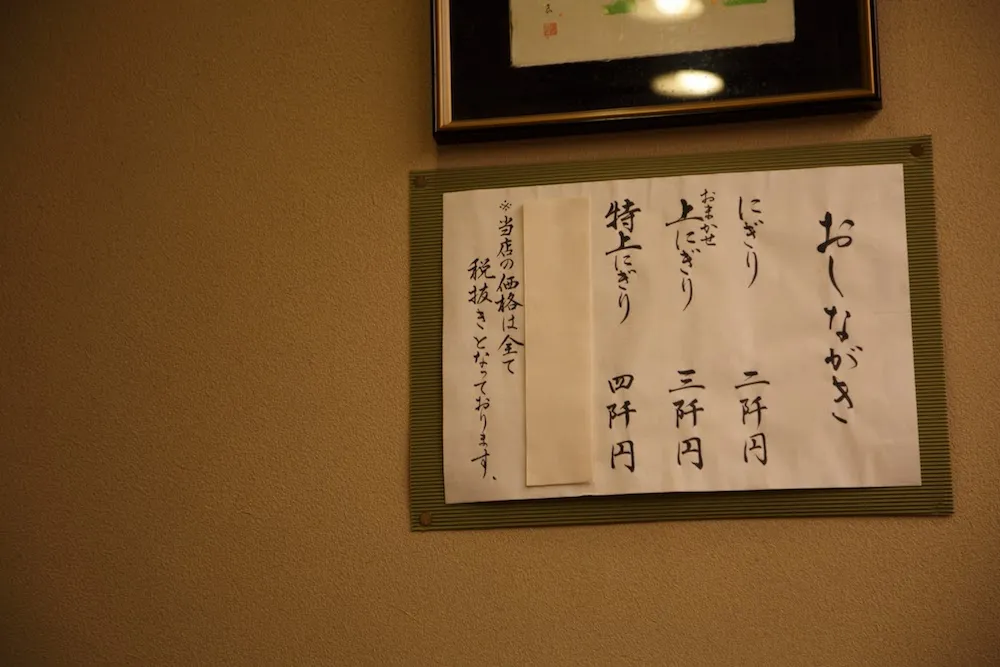 おしながき
にぎり 二阡円
おまかせ
上にぎり 三阡円
特上にぎり 四阡円
※当店の価格は全て
税抜きとなっております、